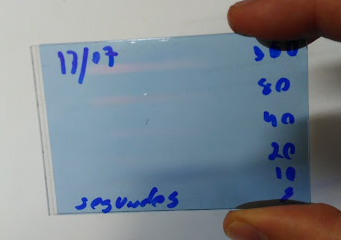 17/07
80
40
20
10
segundos